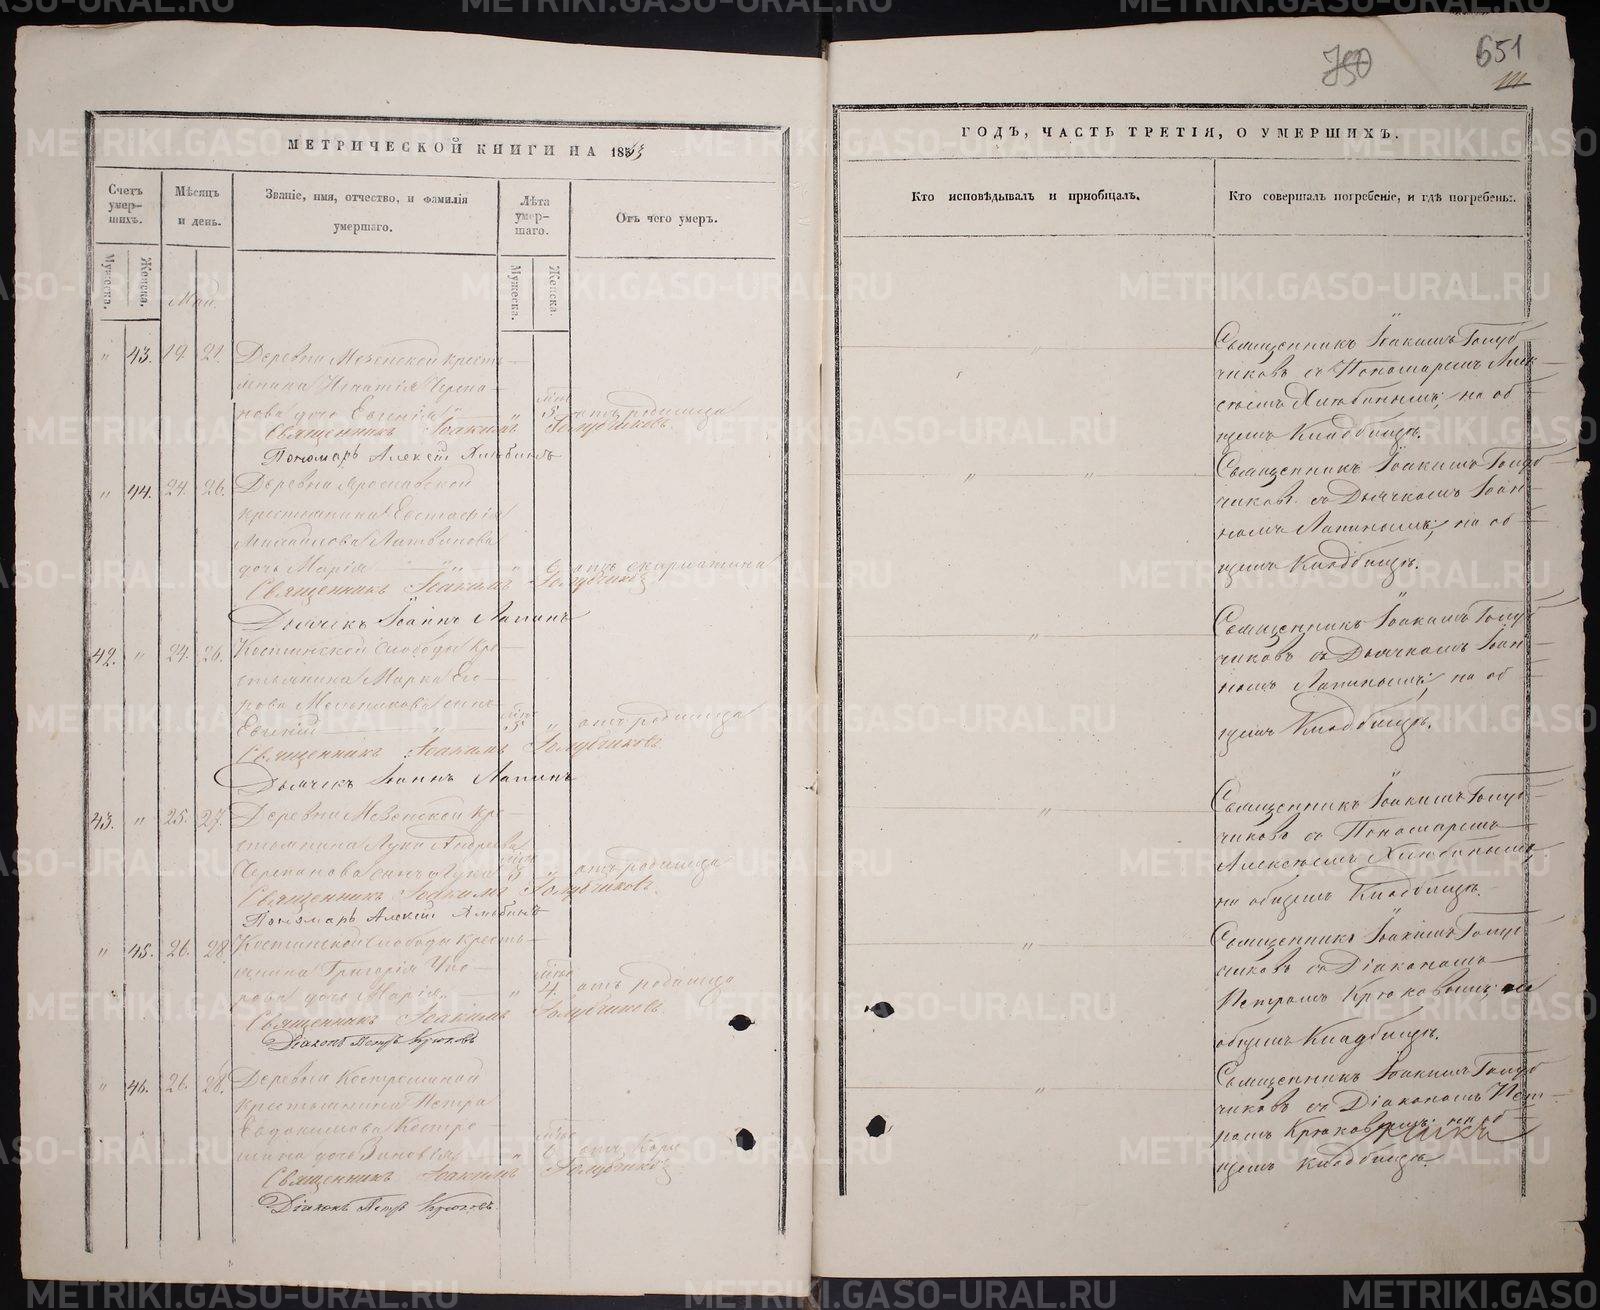 651
МЕТРИЧЕСКОЙ КНИГИ НА 1863
Счетъ умер-шихъ.
Мужеска.
Женска.
Мѣсяцъ и день.
Званіе, имя, отчество, и фамилія умершаго.
Лѣта умер-шаго.
Мужеска.
Женска.
Отъ чего умеръ.
Май.
" 43. 19. 21. Деревни Мезенской кресть-
янина Игнатія Черпа-
нова дочь Евгенія " 5 отъ родимца
Священникъ Іоакимъ Голубчиковъ.
Пономарь Алексѣй Хлыбинъ
" 44. 24. 26. Деревни Ярославской
крестьянина Евстафія
Михайлова Литвинова
дочь Марія " 6 отъ скарлатина
Священникъ Іоакимъ Голубчиковъ
Дьячекъ Іоаннъ Лапинъ
42. " 24. 26. Костинской слободы кре-
стьянина Марка Его-
рова Мельникова сынъ
Евгеній 5 " отъ родимца
Священникъ Іоакимъ Голубчиковъ
Дьячекъ Іоаннъ Лапинъ
43. " 25. 27. Деревни Мезенской кре-
стьянина Луки Андреева
Черепанова сынъ Лука 3 " отъ родимца
Священникъ Іоакимъ Голубчиковъ.
Пономарь Алексѣй Хлыбинъ
" 45. 26. 28. Костинской слободы кресть-
янина Григорія
дочь Марія " 4. отъ родимца
Священникъ Іоакимъ Голубчиковъ.
Діаконъ Петръ Крюковъ
" 46. 26. 28. Деревни Костроминой
крестьянина Петра
Евдокимова Костро-
мина дочь Зиновія " отъ кори
Священникъ Іоакимъ Голубчиковъ
Діаконъ Петръ Крюковъ.
ГОДЪ, ЧАСТЬ ТРЕТІЯ, О УМЕРШИХЪ.
Кто исповѣдывалъ и пріобщалъ.
Кто совершалъ погребеніе, и гдѣ погребены.
Священникъ Іоакимъ Голуб-
чиковъ съ Пономаремъ Алек-
сѣемъ Хлыбинымъ; на об-
щемъ Кладбищѣ.
Священникъ Іоакимъ Голуб-
чиковъ съ Дьячкомъ Іоан-
номъ Лапинымъ; на об-
щемъ Кладбищѣ.
Священникъ Іоакимъ Голуб-
чиковъ съ Дьячкомъ Іоан-
номъ Лапинымъ; на об-
щемъ Кладбищѣ.
Священникъ Іоакимъ Голуб-
чиковъ съ Пономаремъ
Алексѣемъ Хлыбинымъ,
на общемъ Кладбищѣ.
Священникъ Іоакимъ Голуб-
чиковъ съ Діакономъ
Петромъ Крюковымъ; на
общемъ Кладбищѣ.
Священникъ Іоакимъ Голуб-
чиковъ съ Діакономъ Пет-
ромъ Крюковымъ; на об-
щемъ Кладбищѣ.
METRIKI.GASO-URAL.RU